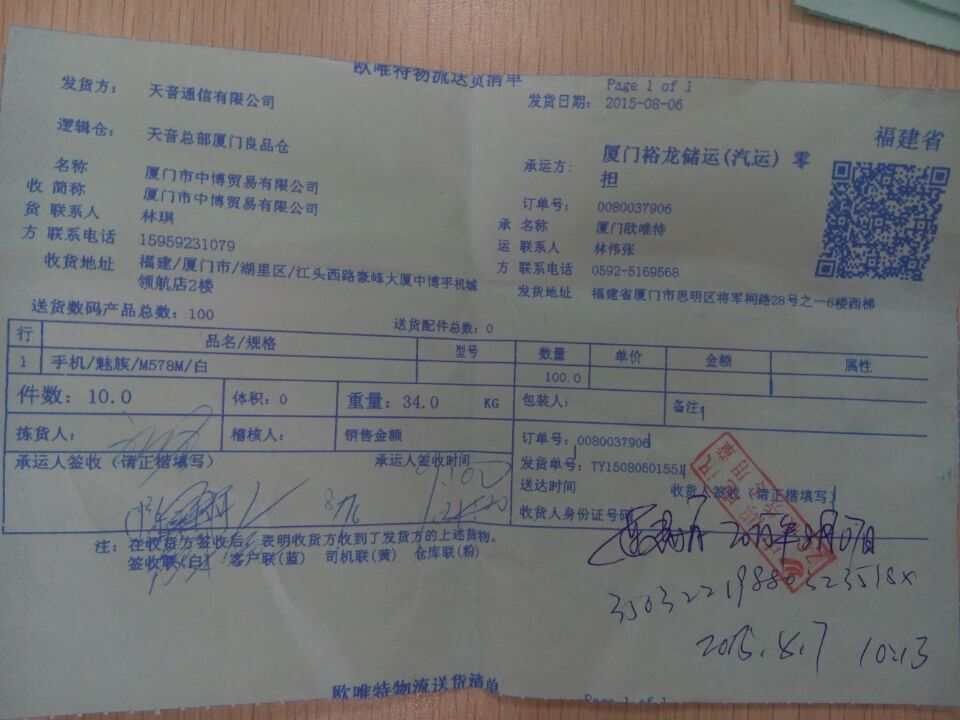 欧唯特物流送货清单
Page 1 of 1
发货方： 天音通信有限公司
发货日期： 2015-08-06
逻辑仓： 天音总部厦门良品仓
福建省
承运方： 厦门裕龙储运(汽运) 零担
名称 厦门市中博贸易有限公司
订单号： 0080037906
收 简称 厦门市中博贸易有限公司
承 名称 厦门欧唯特
货 联系人 林琪
运 联系人 林伟张
方 联系电话 15959231079
方 联系电话 0592-5169568
收货地址 福建/厦门市/湖里区/江头西路豪峰大厦中博手机城
领航店2楼
发货地址 福建省厦门市思明区将军祠路28号之一6楼西梯
送货数码产品总数：100
送货配件总数：0
行 品名/规格 型号 数量 单价 金额 属性
1 手机/魅族/M578M/白 100.0
件数：10.0 体积：0 重量：34.0 KG 包装人： 备注：
拣货人： 稽核人： 销售金额
订单号：0080037906
承运人签收（请正楷填写） 承运人签收时间
发货单号：TY15080601551
送达时间 收货人签收（请正楷填写）
收货人身份证号码
8/6
2015年8月07日
注：在收货方签收后，表明收货方收到了发货方的上述货物。
签收联(白) 客户联(蓝) 司机联(黄) 仓库联(粉)
35032219880523518X
2015.8.7 10:13
欧唯特物流送货清单
Page 1 of 1